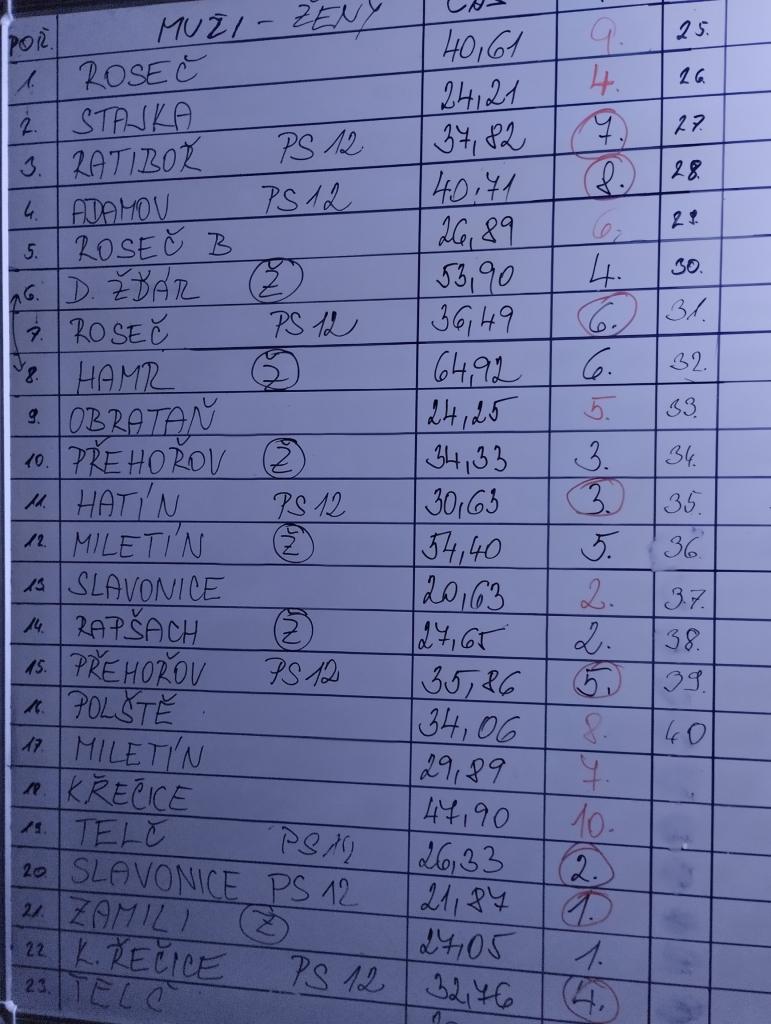 POŘ. MUŽI - ŽENY
1. ROSEČ 40,61 9. 25.
2. STAJKA 24,21 4. 26.
3. RATIBOŘ PS 12 37,82 7. 27.
4. ADAMOV PS 12 40,71 8. 28.
5. ROSEČ B 26,89 6. 29.
6. D. ŽĎÁR Ž 53,90 4. 30.
7. ROSEČ PS 12 36,49 6. 31.
8. HAMR Ž 64,92 6. 32.
9. OBRATAŇ 24,25 5. 33.
10. PŘEHOŘOV Ž 34,33 3. 34.
11. HATÍN PS 12 30,63 3. 35.
12. MILETÍN Ž 54,40 5. 36
13 SLAVONICE 20,63 2. 37.
14. RAPŠACH Ž 27,65 2. 38.
15. PŘEHOŘOV PS 12 35,86 5. 39.
16. POLŠTĚ 34,06 8. 40
17. MILETÍN 29,89 7.
18. K.ŘEČICE 47,90 10.
19. TELČ 26,33 2.
20. SLAVONICE PS 12 21,87 1.
21. ZAMILI Ž 27,05 1.
22 K. ŘEČICE PS 12 32,76 4.
23. TELČ